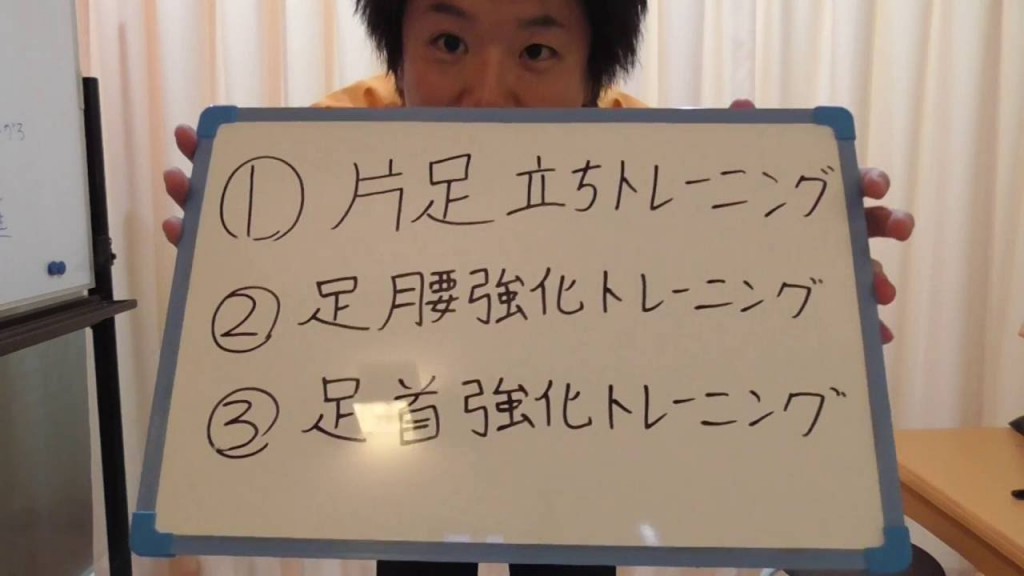 ① 片足立ちトレーニング
② 足腰強化トレーニング
③ 足首強化トレーニング